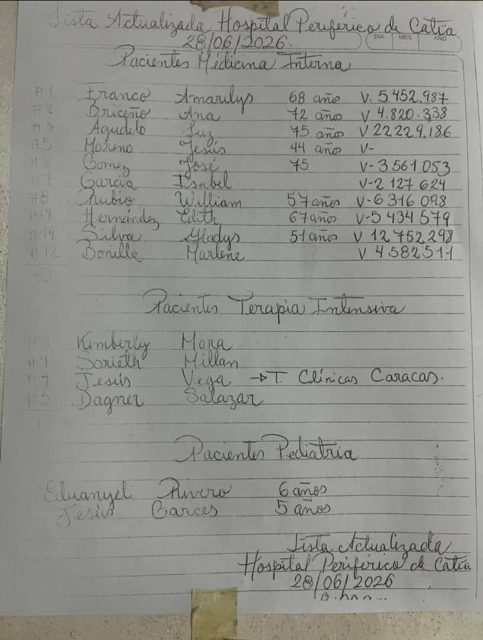 Lista Actualizada Hospital Periférico de Catia
28/06/2026
DIA MES AÑO
Pacientes Medicina Interna
#1 Franco Amarilys 68 años V. 5.452.987
#2 Briceño Ana 72 años V 4.820.338
Agudelo Luz 75 años V 22229.186
#5 Moreno Jesús 44 años V-
Gomez José 75 V-3561053
Garcia Isabel V-2 127 624
#8 Rubio William 57 años V-6316098
Hernández Edith 67 años V-5434579
#14 Silva Gladys 51 años V 12 752 298
#12 Bonilla Marlene V 4582511
Pacientes Terapia Intensiva
Kimberly Mora
Sorieth Millan
Jesús Vega → T. Clínicas Caracas.
Dagner Salazar
Pacientes Pediatria
Eduanyeli Rivero 6 años
Jesús Garces 5 años
Lista Actualizada
Hospital Periférico de Catia
28/06/2026